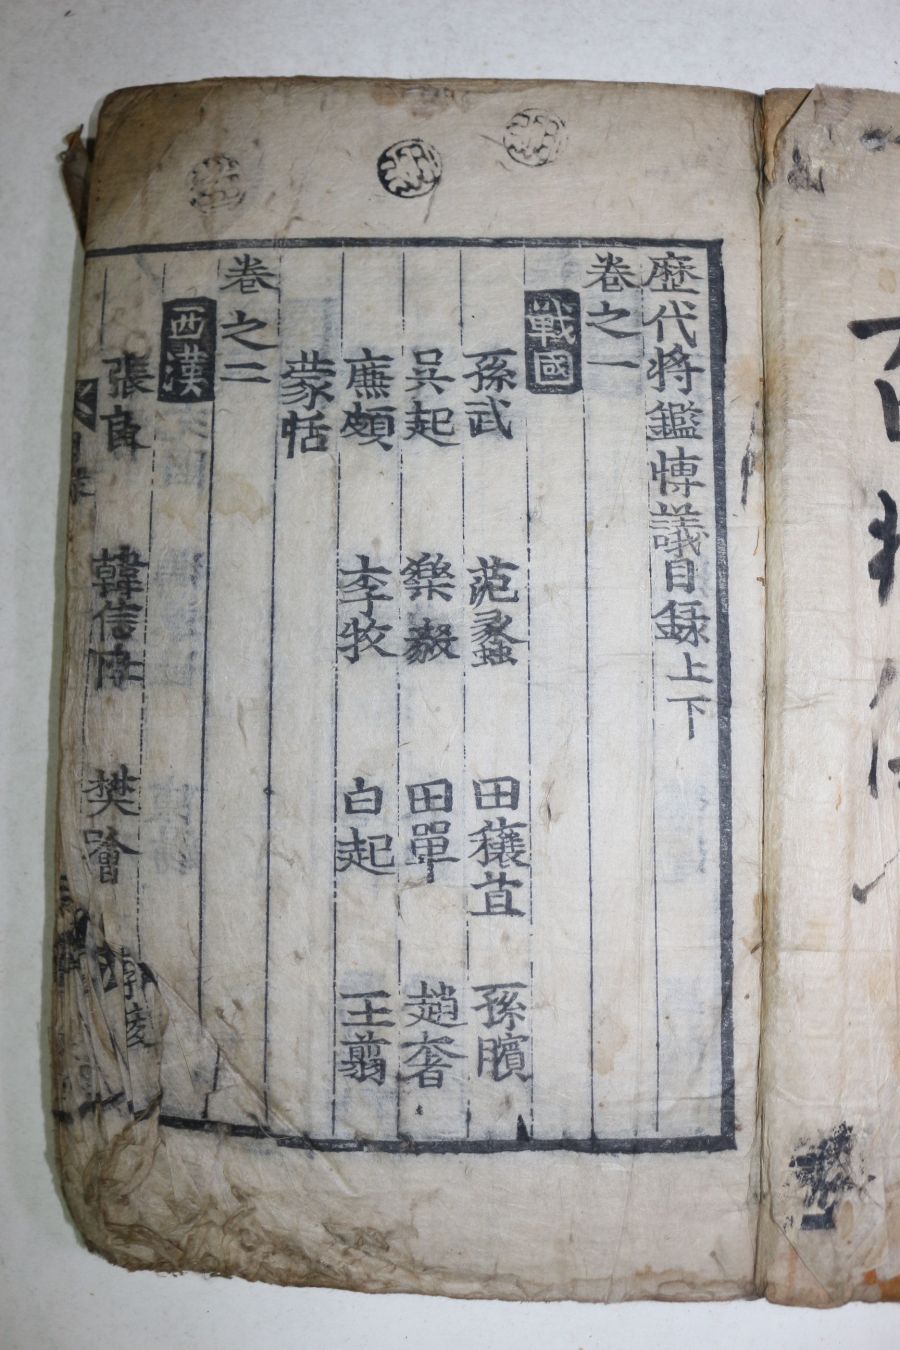 歷代將鑑愽議目錄上下
卷之一
戰國
孫武 范蠡 田穰苴 孫臏
吳起 樂毅 田單 趙奢
廉頗 李牧 白起 王翦
蒙恬
卷之二
西漢
張良 韓信 樊噲 李陵